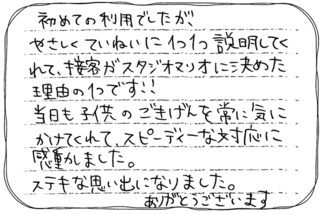 初めての利用でしたが、
やさしくていねいに1つ1つ説明してく
れて、接客がスタジオマリオに決めた
理由の1つです!!
当日も子供のごきげんを常に気に
かけてくれて、スピーディーな対応に
感動しました。
ステキな思い出になりました。
ありがとうございます